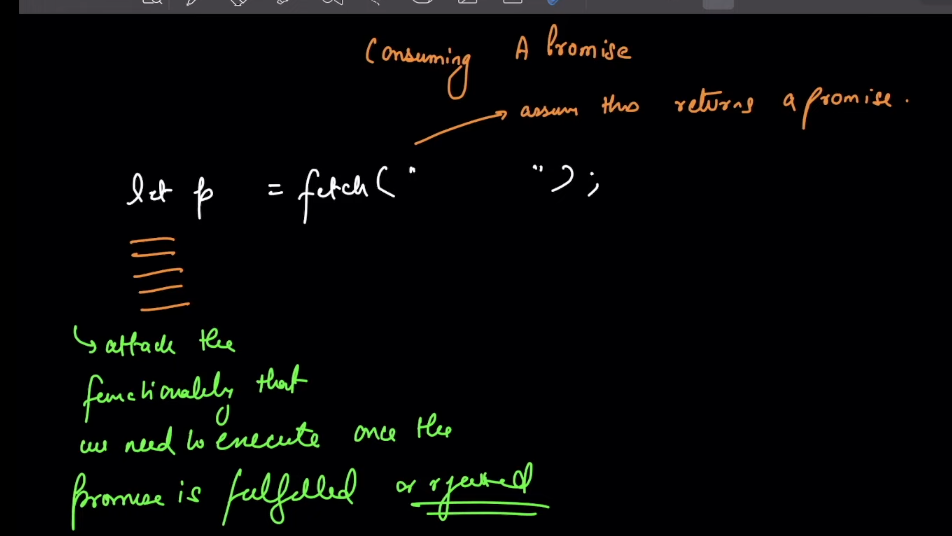 Consuming A Promise
assume this returns a promise.
let p = fetch(" ");
attach the
functionality that
we need to execute once the
Promise is fulfilled or rejected